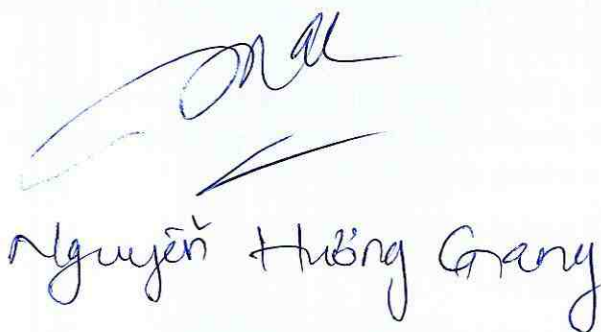 Nguyễn Hương Giang